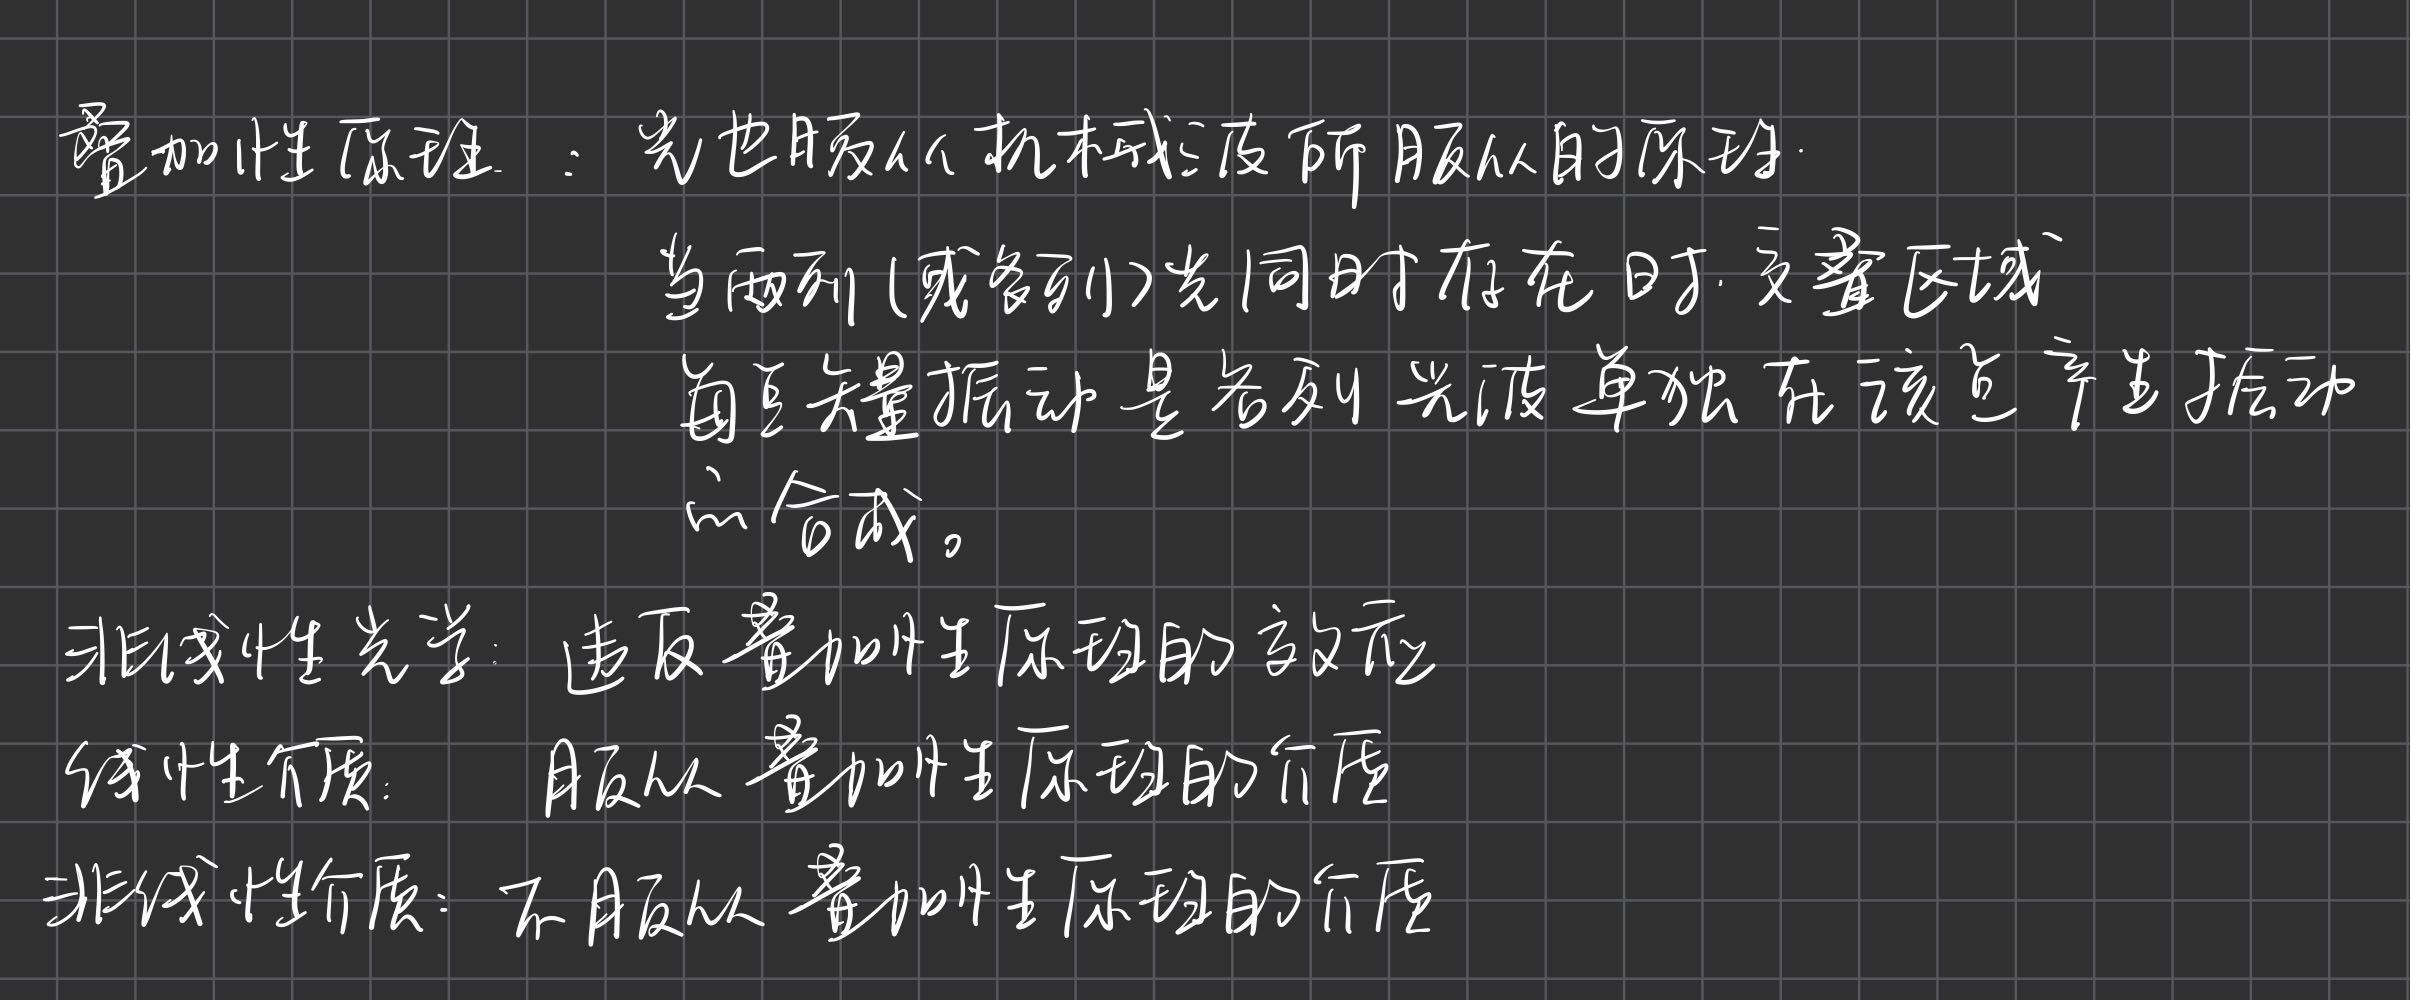 叠加性原理：光也服从机械波所服从的原理.
当两列(或多列)光同时存在时.交叠区域
每点矢量振动是各列光波单独在该点产生振动
的合成。
非线性光学：违反叠加性原理的效应
线性介质：服从叠加性原理的介质
非线性介质：不服从叠加性原理的介质